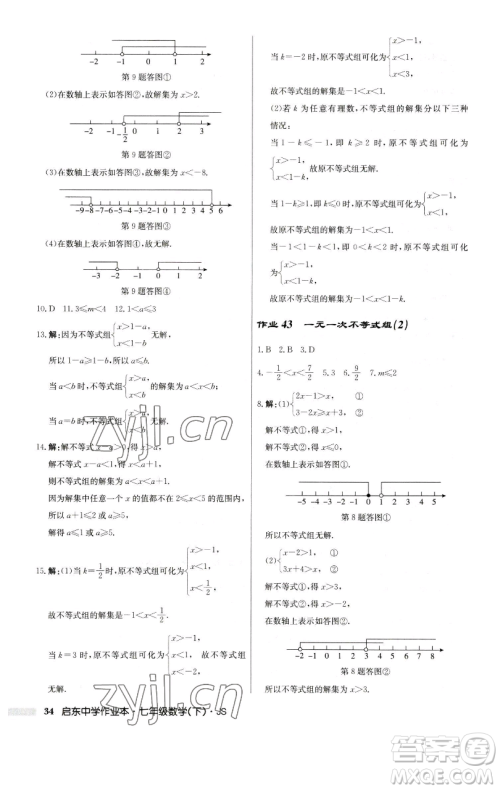 -2 -1 0 1 2
第9题答图①
(2)在数轴上表示如答图②,故解集为x>2.
-2 -1 -1/2 0 1 2 3
第9题答图②
(3)在数轴上表示如答图③,故解集为x<-8.
-9-8-7-6-5-4-3-2-1 0 1 2 3 4 5 6
第9题答图③
(4)在数轴上表示如答图④,故无解.
-3 -2 -1 0 1 2
第9题答图④
10. D 11. 3≤m<4 12. 1<a≤5
13. 解:因为不等式组{x>1-a, x>a-1}的解集是x>a-1,
所以a-1≥1-a,解得a≥1.
当a<b时,不等式组{x>a, x<b}的解集为a<x<b;
当a=b时,不等式组{x>a, x<b}无解.
14. 解:解不等式x-a>0,得x>a,
解不等式x-a<1,得x<a+1,
则不等式组的解集为a<x<a+1.
因为解集中任意一个x的值都不在2≤x<5的范围内,
所以a+1≤2或a≥5.
解得a≤1或a≥5.
15. 解:(1)当k=1/2时,原不等式组可化为{x>-1, x<1, x<1/2,
故不等式组的解集为-1<x<1/2.
当k=3时,原不等式组可化为{x>-1, x<1, x<-2
无解.
当k=-2时,原不等式组可化为{x>-1, x<1, x<3,
故不等式组的解集是-1<x<1.
(2)若k为任意有理数,不等式组的解集分以下三种
情况:
当1-k≤-1,即k≥2时,原不等式组可化为
故不等式组无解.
当1-k≥1,即k≤0时,原不等式组可化为
故不等式组的解集为-1<x<1.
当-1<1-k<1,即0<k<2时,原不等式组可化为
{x>-1, x<1, x<1-k,
故不等式组的解集为-1<x<1-k.
作业43 一元一次不等式组(2)
1. B 2. B 3. D
4. -1/2<x<7/2 5. 3 6. 9/2 7. m≤2
8. 解:(1){2x-1>x, ① 3-2x≥x+3. ②
解不等式①,得x>1.
解不等式②,得x≤0.
在数轴上表示如答图①.
-4 -3 -2 -1 0 1 2 3 4
第8题答图①
所以不等式组无解.
(2){x-2>1, ① 3x+4>x, ②
解不等式①,得x>3.
解不等式②,得x>-2.
在数轴上表示如答图②.
-2 -1 0 1 2 3 4 5 6 7 8
第8题答图②
所以不等式组的解集为x>3.
zyjl.cn
zyjl.cn
34 启东中学作业本·七年级数学(下)·JS
答案圈
MXQE.COM